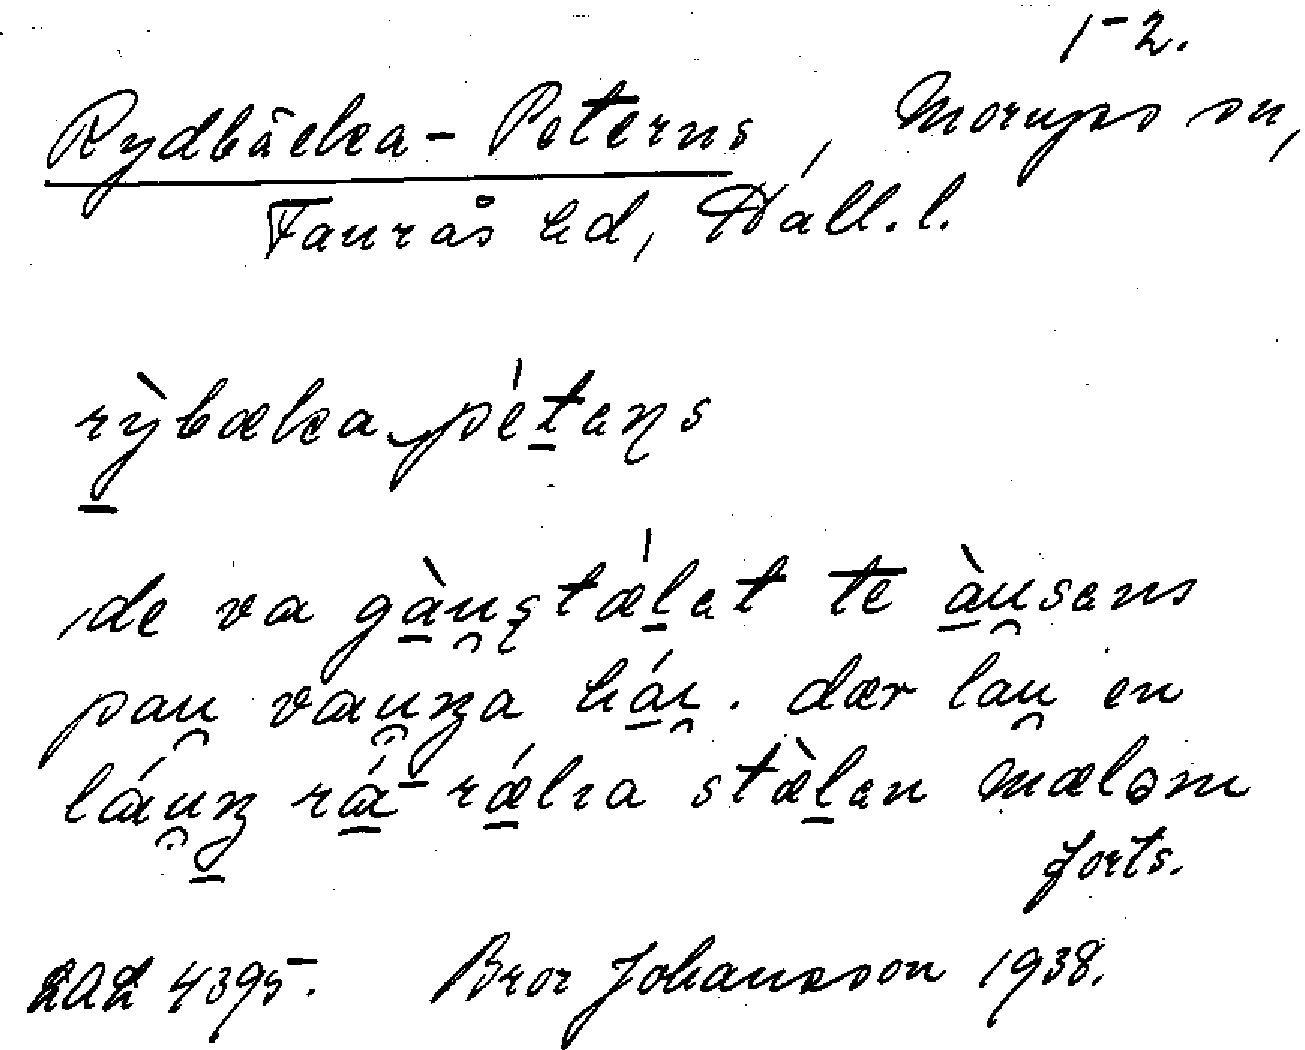 1-2.
Rydbäcka-Peterns, Morups sn,
Faurås hd, Hall.l.
rỳbæka pétæɳs
de va gàu̯ʂtælet te àu̯sens
pau̯ vau̯ɳa hái̯. dær lau̯ en
láu̯ɳ rá- rælia stælen mæləm
forts.
LAL 4395. Bror Johansson 1938.